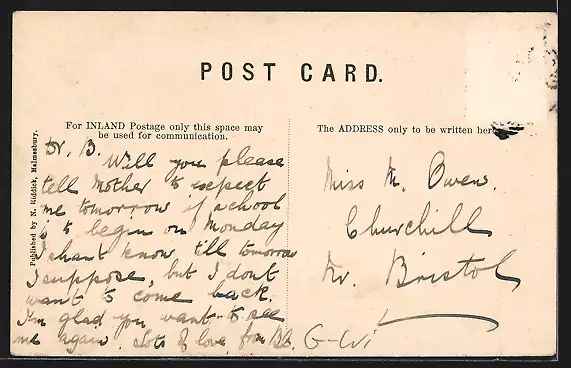 POST CARD.
For INLAND Postage only this space may
be used for communication.
The ADDRESS only to be written here
Published by N. Riddick, Malmesbury.
Dr. B.
Will you please
tell Mother to expect
me tomorrow if school
is to begin on Monday
I shant know till tomorrow
I suppose, but I dont
want to come back.
I'm glad you want to see
me again. Lots of love from
Miss M. Owens.
Churchill
Nr. Bristol